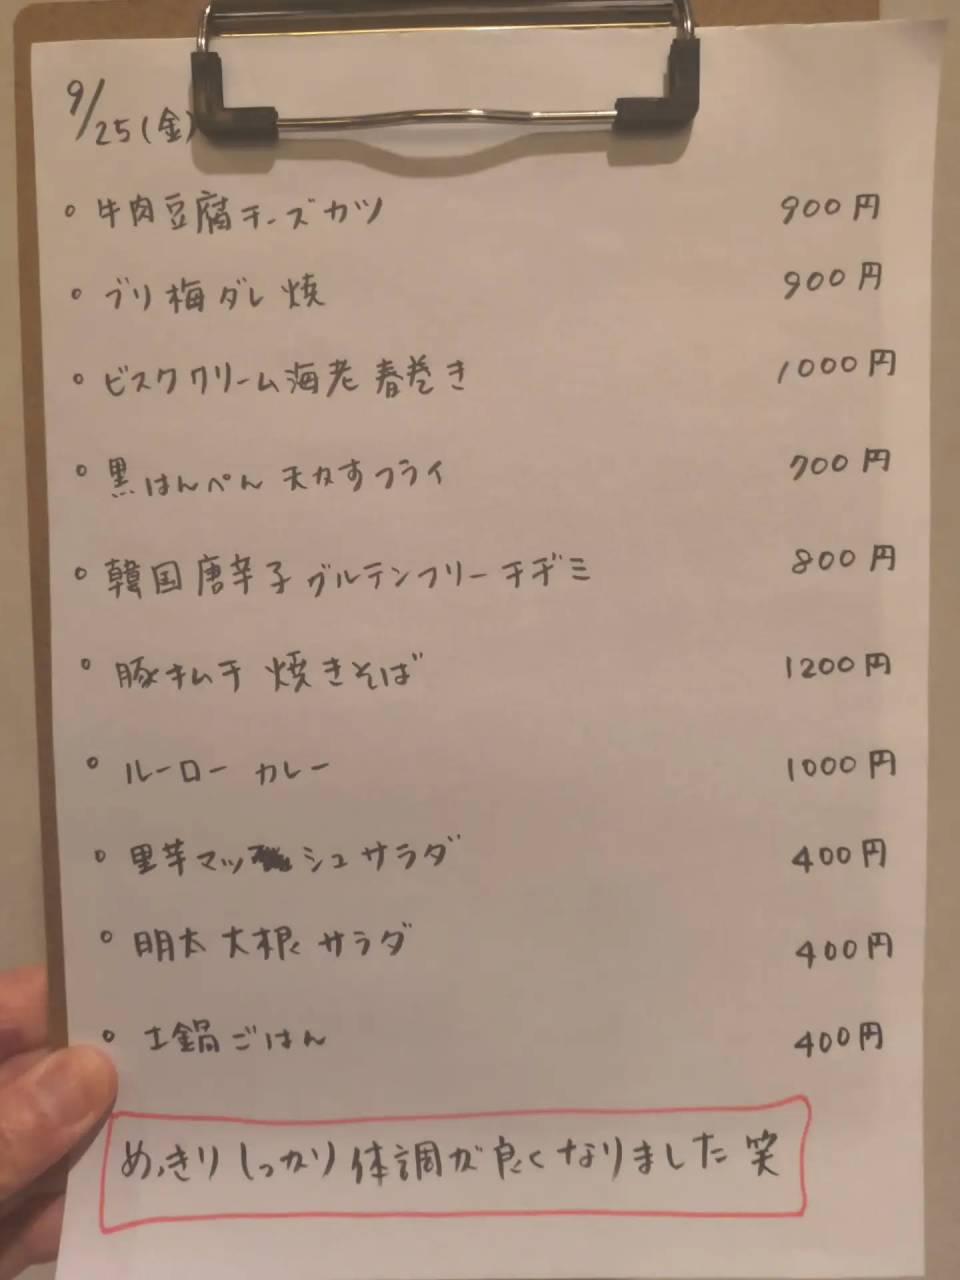 9/25(金)
○牛肉豆腐チーズカツ 900円
○ブリ梅ダレ焼 900円
○ビスククリーム海老春巻き 1000円
○黒はんぺん天かすフライ 700円
○韓国唐辛子グルテンフリーチヂミ 800円
○豚キムチ 焼きそば 1200円
○ルーロー カレー 1000円
○里芋マッシュサラダ 400円
○明太大根サラダ 400円
○土鍋ごはん 400円
めっきりしっかり体調が良くなりました笑